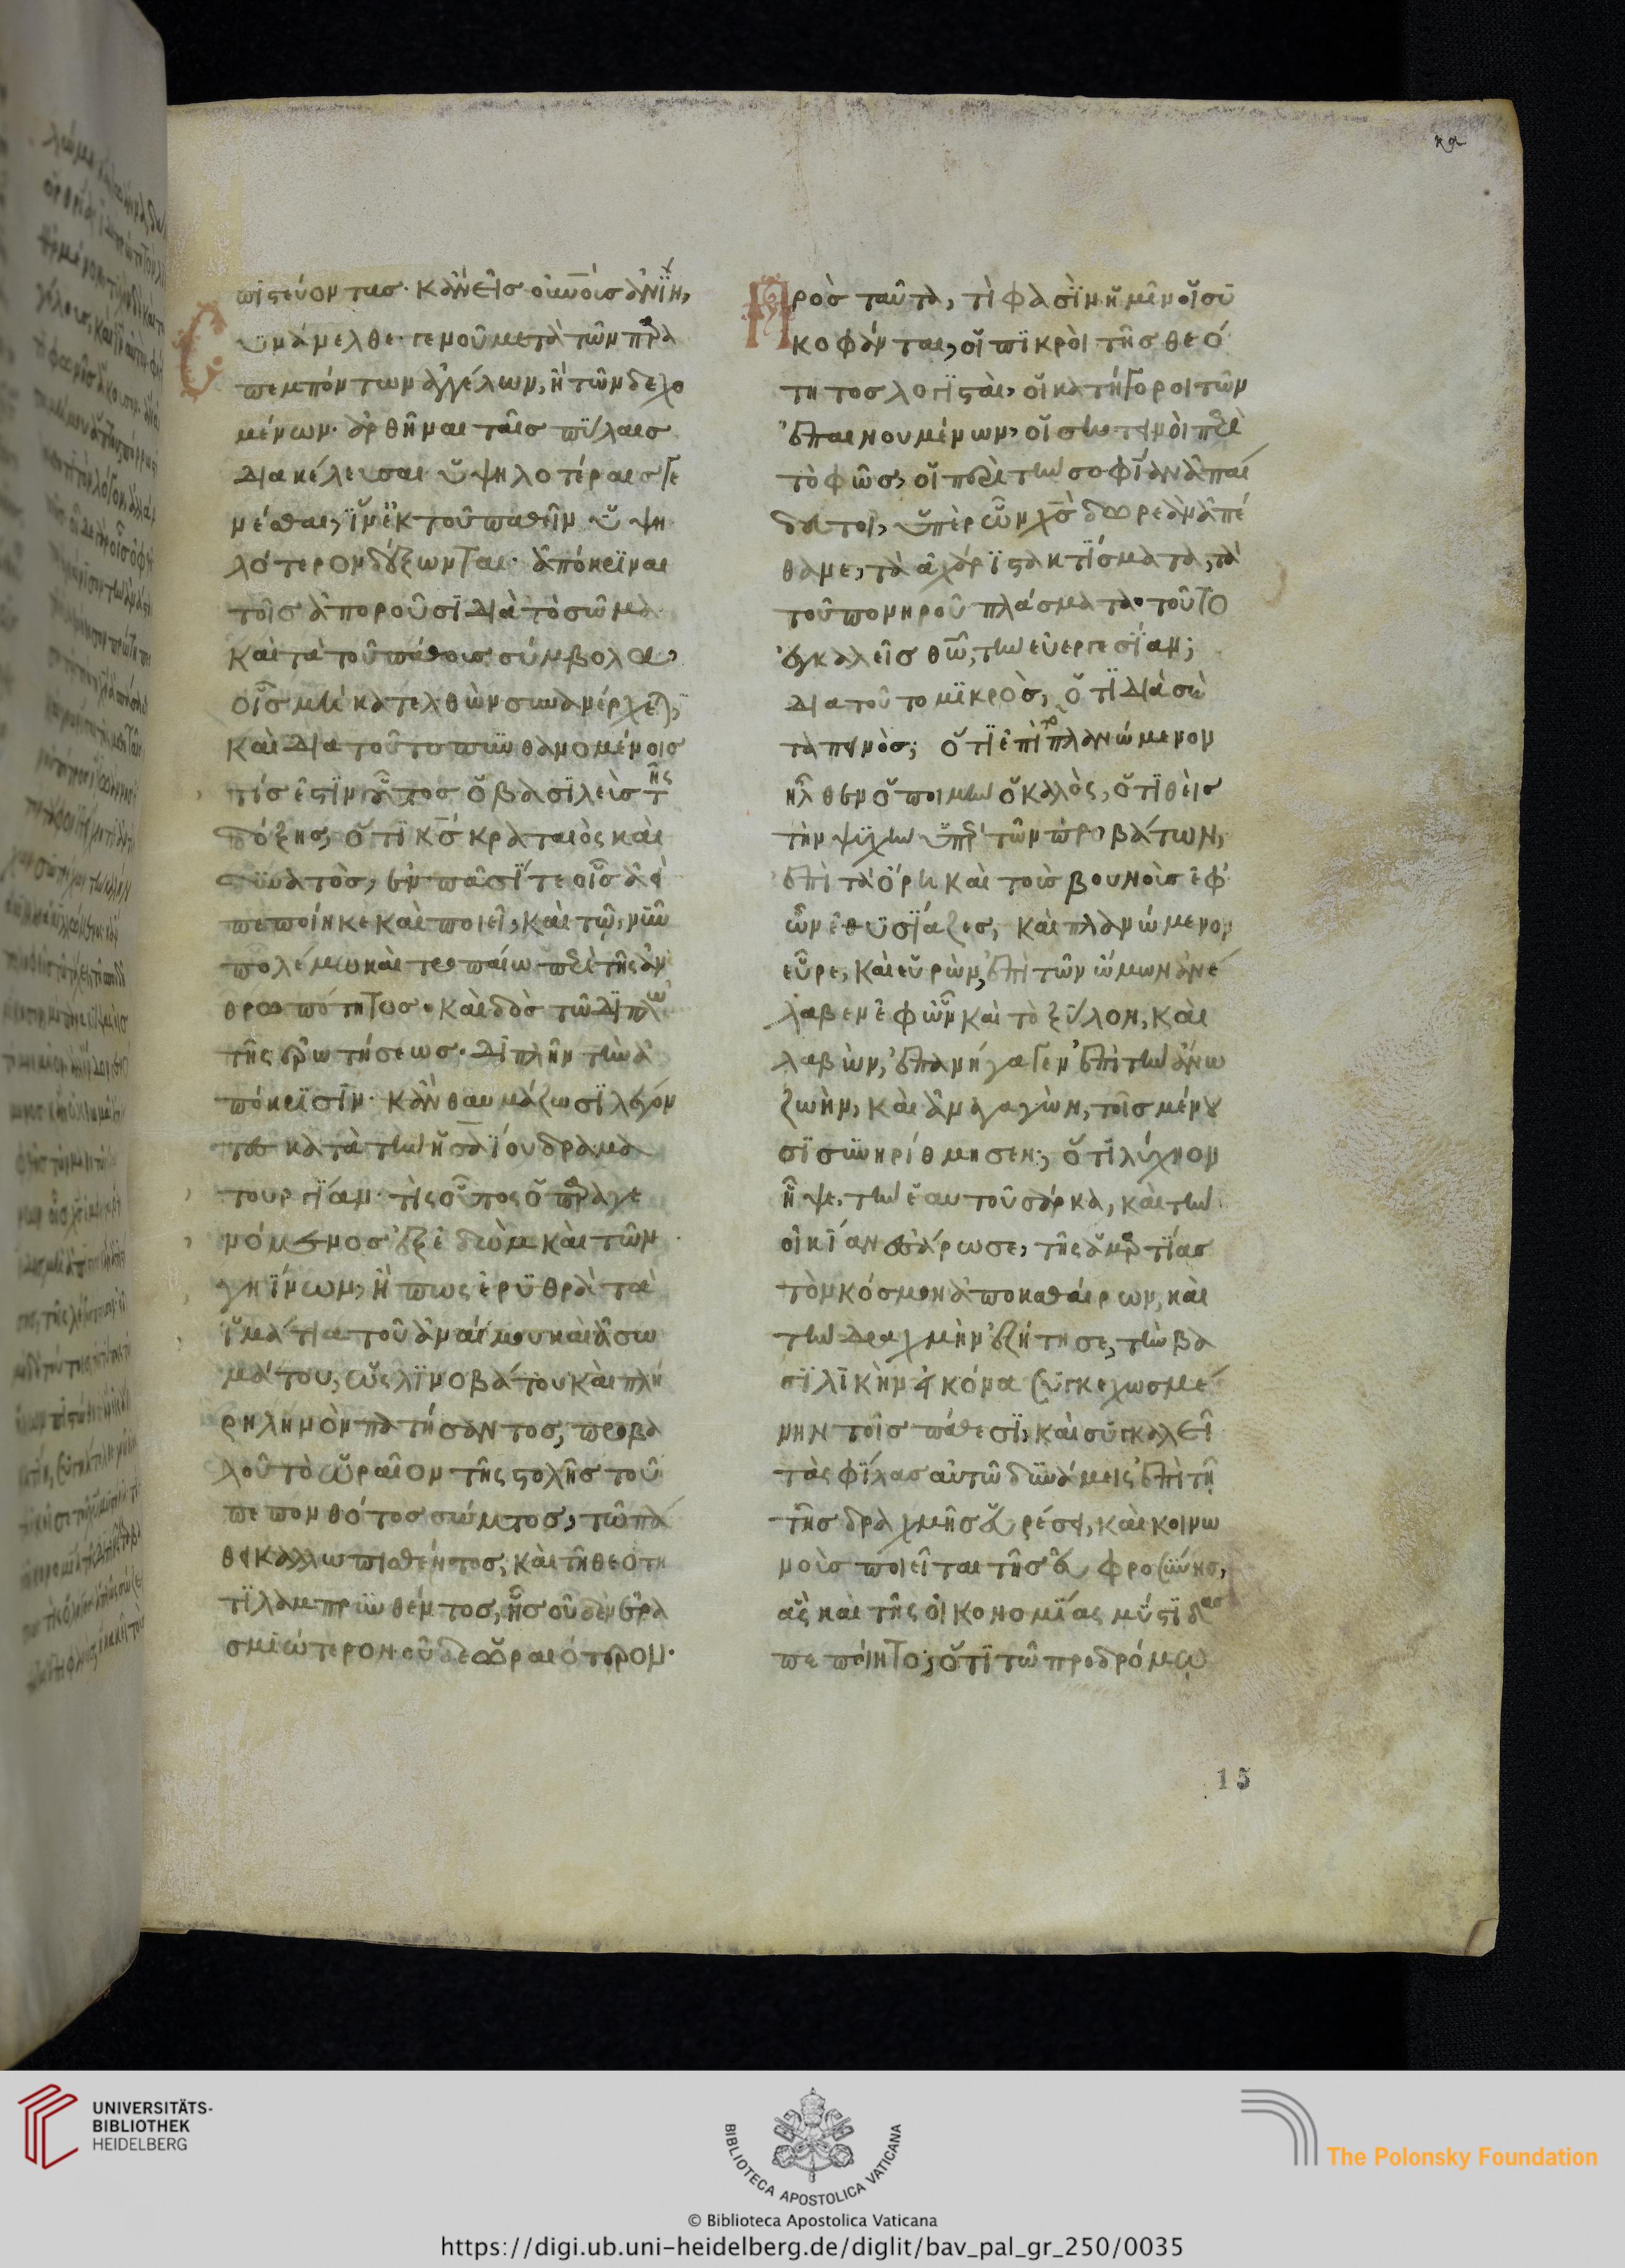 κα
πιστεύοντας· κἂν εἰς οὐνοὺς ἀνίη,
συνάνελθε· γενοῦ μετὰ τῶν παρα
πεμπόντων ἀγγέλων, ἢ τῶν δεχο
μένων· ἀρθῆναι ταῖς πύλαις
διακέλευσαι ὑψηλοτέραις γε
νέσθαι, ἵν' ἐκ τοῦ παθεῖν ὑψη
λότερον δέξωνται· ἀπόκριναι
τοῖς ἀποροῦσι διὰ τὸ σῶμα
καὶ τὰ τοῦ πάθους σύμβολα,
οἷς μὴ κατελθὼν συνανέρχεται,
καὶ διατοῦτο πυνθανομένοις
τίς ἐστιν οὗτος ὁ βασιλεὺς τῆς
δόξης, ὅτι κς κραταιὸς καὶ
δυνατὸς, ἐν πᾶσί τε οἷς ἀεὶ
πεποίηκε καὶ ποιεῖ, καὶ τῷ νῦν
πολέμω καὶ τροπαίω ὑπὲρ τῆς ἀν
θρωπότητος· καὶ δὸς τῶ διπλῶ
τῆς ἐρωτήσεως· διπλῆν τὴν ἀ
πόκρισιν· κἂν θαυμάζωσι λέγον
τες κατὰ τὴν ἡσαΐου δραμα
τουργίαν· τίς οὗτος ὁ παραγε
νόμενος ἐξ ἐδὼμ καὶ τῶν
γηΐνων, ἢ πῶς ἐρυθρὰ τὰ
ἱμάτια τοῦ ἀναίμου καὶ ἀσω
μάτου, ὡς ληνοβάτου καὶ πλή
ρη ληνὸν πατήσαντος, προβα
λοῦ τὸ ὡραῖον τῆς στολῆς τοῦ
πεπονθότος σώματος, τῶ πά
θει καλλωπισθέντος, καὶ τῆ θεότη
τι λαμπρυνθέντος, ἧς οὐδὲν ἐρα
σμιώτερον οὐδὲ ὡραιότερον·
Πρὸς ταῦτα, τί φασὶν ἡμῖν οἱ συ
κοφάνται, οἱ πικροὶ τῆς θεό
τητος λογισταὶ, οἱ κατήγοροι τῶν
ἐπαινουμένων, οἱ σκοτεινοὶ περὶ
τὸ φῶς, οἱ περὶ τὴν σοφίαν ἀπαί
δευτοι, ὑπὲρ ὧν χς δωρεὰν ἀπέ
θανε, τὰ ἀχάριστα κτίσματα, τὰ
τοῦ πονηροῦ πλάσματα· τοῦτο
ἐγκαλεῖς θῶ, τὴν εὐεργεσίαν;
διατοῦτο μικρὸς, ὅτι διὰ σὲ
ταπεινὸς; ὅτι ἐπὶ τὸ πλανώμενον
ἦλθεν ὁ ποιμὴν ὁ καλὸς, ὁ τιθεὶς
τὴν ψυχὴν ὑπὲρ τῶν προβάτων,
ἐπὶ τὰ ὄρη καὶ τοὺς βουνοὺς ἐφ'
ὧν ἐθυσίαζες, καὶ πλανώμενον
εὗρε, καὶ εὑρὼν, ἐπὶ τῶν ὤμων ἀνέ
λαβεν ἐφ' ὧν καὶ τὸ ξύλον, καὶ
λαβὼν, ἐπανήγαγεν ἐπὶ τὴν ἄνω
ζωὴν, καὶ ἀναγαγὼν, τοῖς μένου
σι συνηρίθμησεν; ὅτι λύχνον
ἧψε, τὴν ἑαυτοῦ σάρκα, καὶ τὴν
οἰκίαν ἐσάρωσε, τῆς ἁμαρτίας
τὸν κόσμον ἀποκαθαίρων, καὶ
τὴν δραχμὴν ἐζήτησε, τὴν βα
σιλικὴν εἰκόνα συγκεχωσμέ
νην τοῖς πάθεσι, καὶ συγκαλεῖ
τὰς φίλας αὐτῶ δυνάμεις ἐπὶ τῆ
τῆς δραχμῆς εὑρέσει, καὶ κοινω
νοὺς ποιεῖται τῆς εὐφροσύνης,
ἃς καὶ τῆς οἰκονομίας μύστιδας
πεποίητο; ὅτι τῶ προδρόμω
15
UNIVERSITÄTS-
BIBLIOTHEK
HEIDELBERG
BIBLIOTECA APOSTOLICA VATICANA
The Polonsky Foundation
© Biblioteca Apostolica Vaticana
https://digi.ub.uni-heidelberg.de/diglit/bav_pal_gr_250/0035